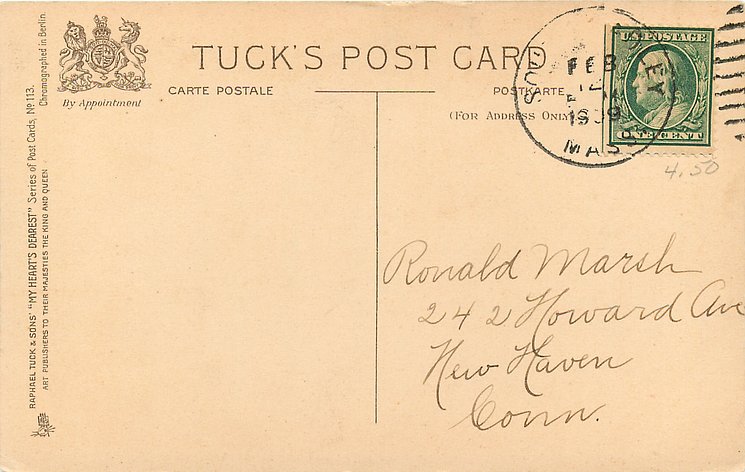 TUCK'S POST CARD
CARTE POSTALE
POSTKARTE
(FOR ADDRESS ONLY)
By Appointment
RAPHAEL TUCK & SONS' "MY HEART'S DEAREST" Series of Post Cards, No 113.
ART PUBLISHERS TO THEIR MAJESTIES THE KING AND QUEEN
Chromographed in Berlin.
FEB
12
1909
MASS
U.S. POSTAGE
ONE CENT
4.50
Ronald Marsh
242 Howard Ave
New Haven
Conn.